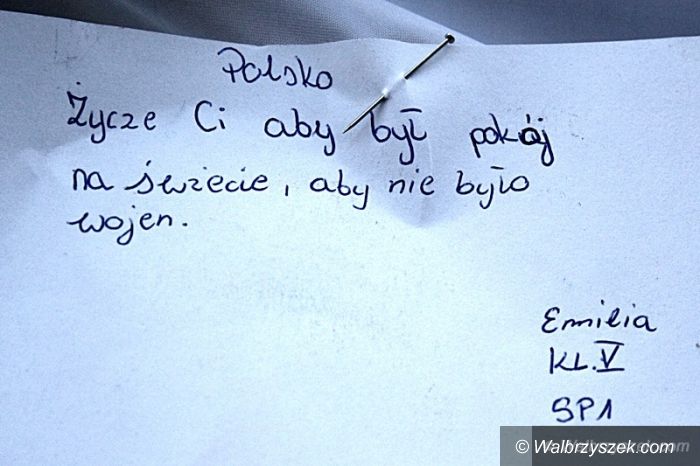 Polsko
Życze Ci aby był pokój
na świecie, aby nie było
wojen.
Emilia
KL.V
SP1
© Walbrzyszek.com